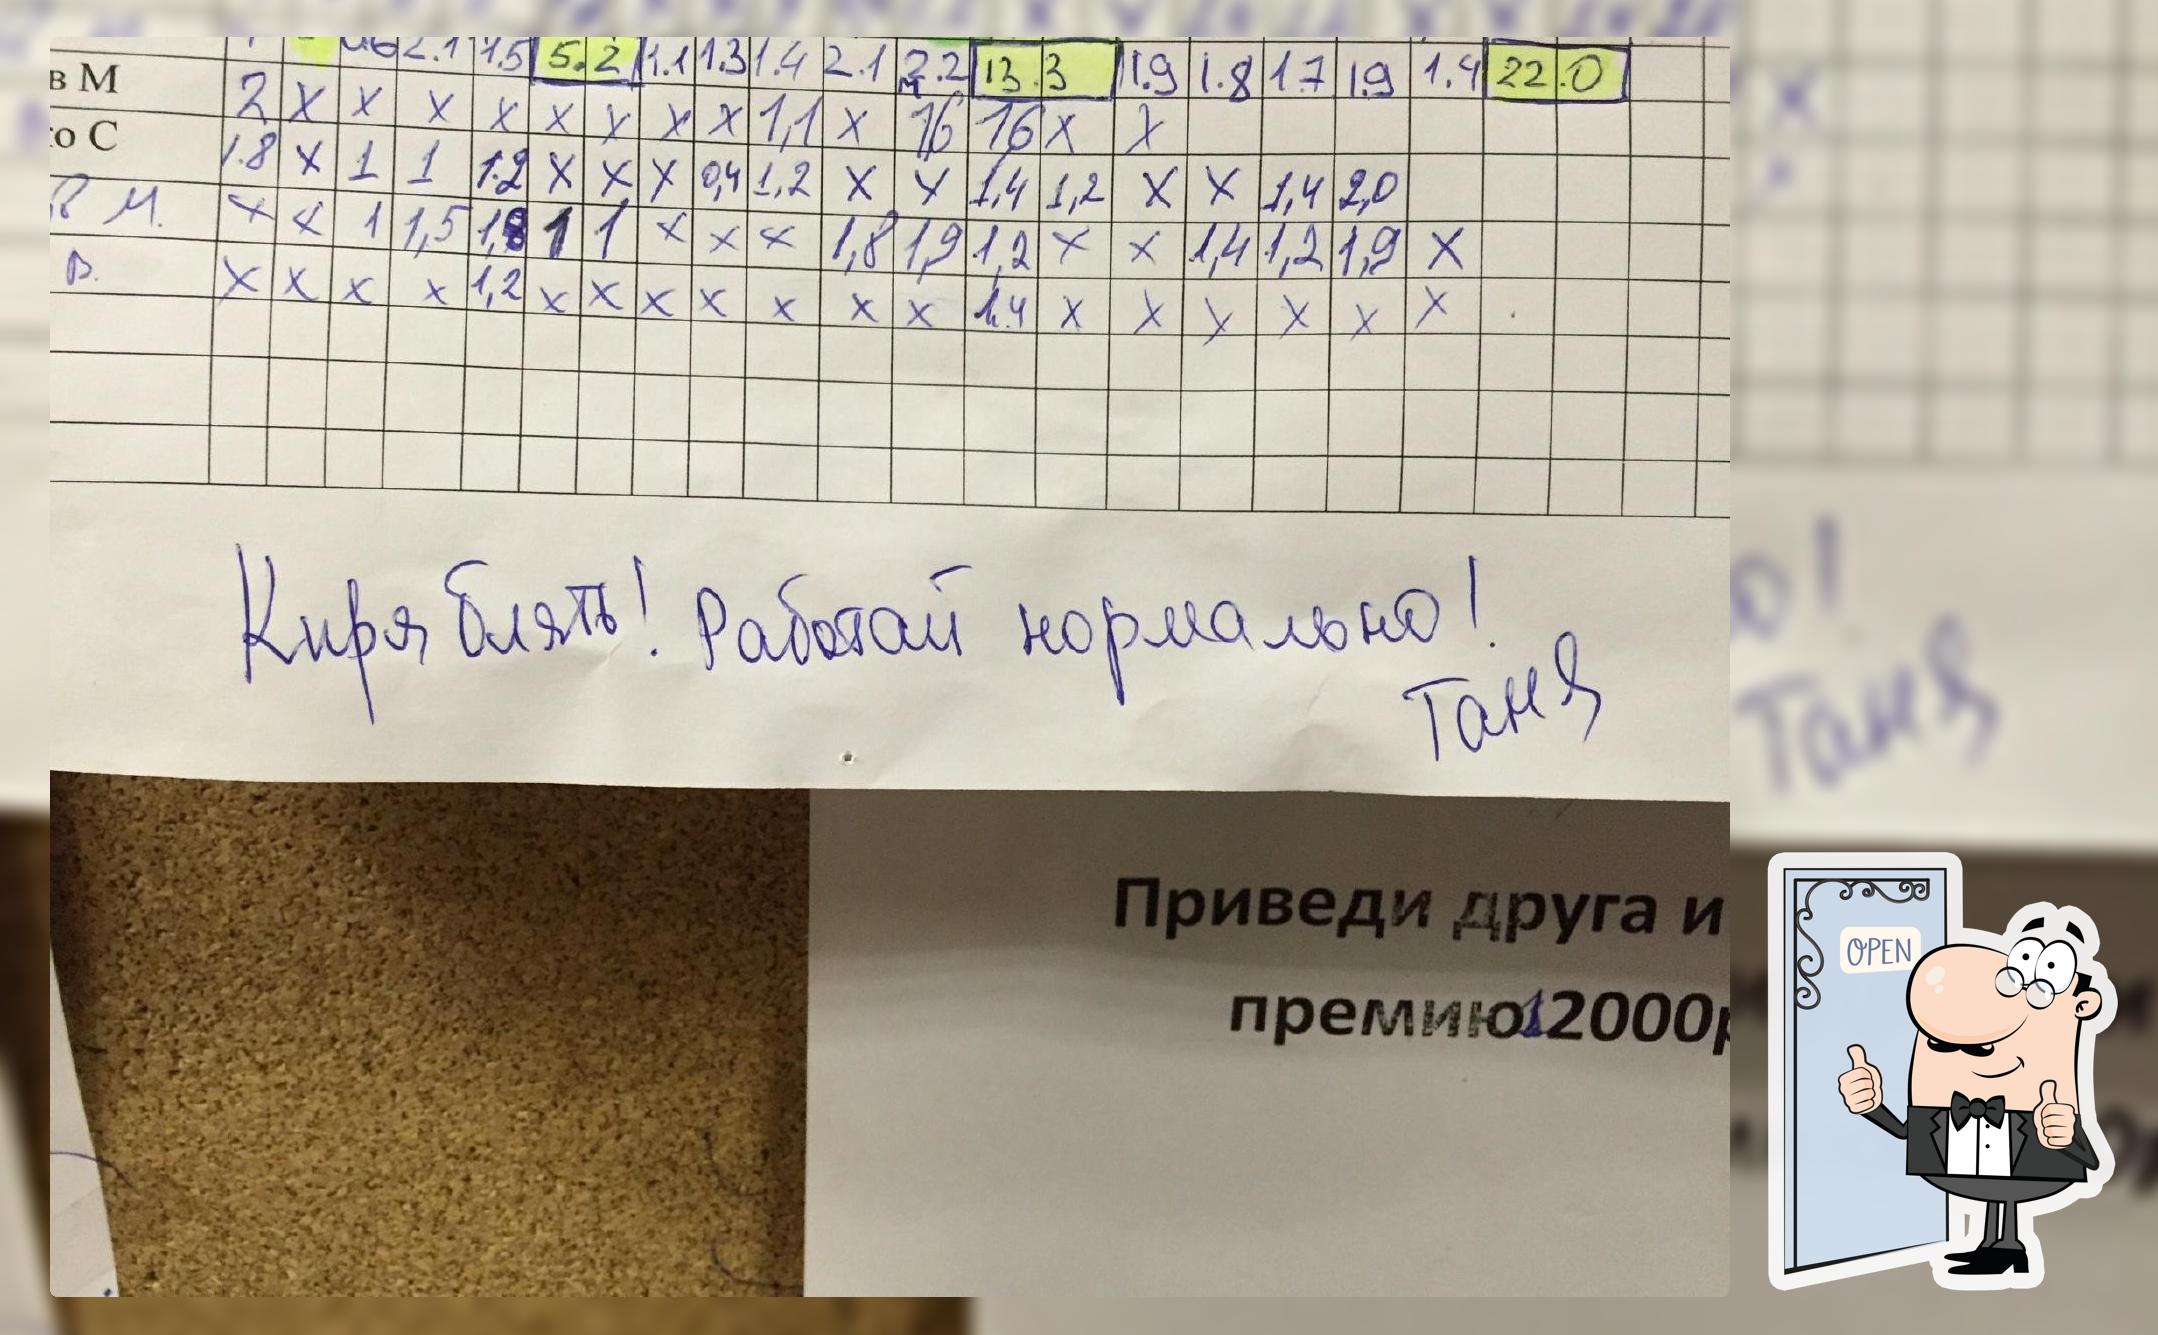 2.1 1.5 5.2 1.1 1.3 1.4 2.1 2.2 13.3 1.9 1.8 1.7 1.9 1.4 22.0
в М 2 х х х х х х х х 1,1 х 16 16 х х
о С 1.8 х 1 1 1.2 х х х 0,4 1,2 х х 1,4 1,2 х х 1,4 2,0
М. х х 1 1,5 1,8 1 1 х х х 1,8 1,9 1,2 х х 1,4 1,2 1,9 х
В. х х х х 1,2 х х х х х х х 1.4 х х х х х х
Киря блять! Работай нормально!
Таня
Приведи друга и
премию 12000р
OPEN